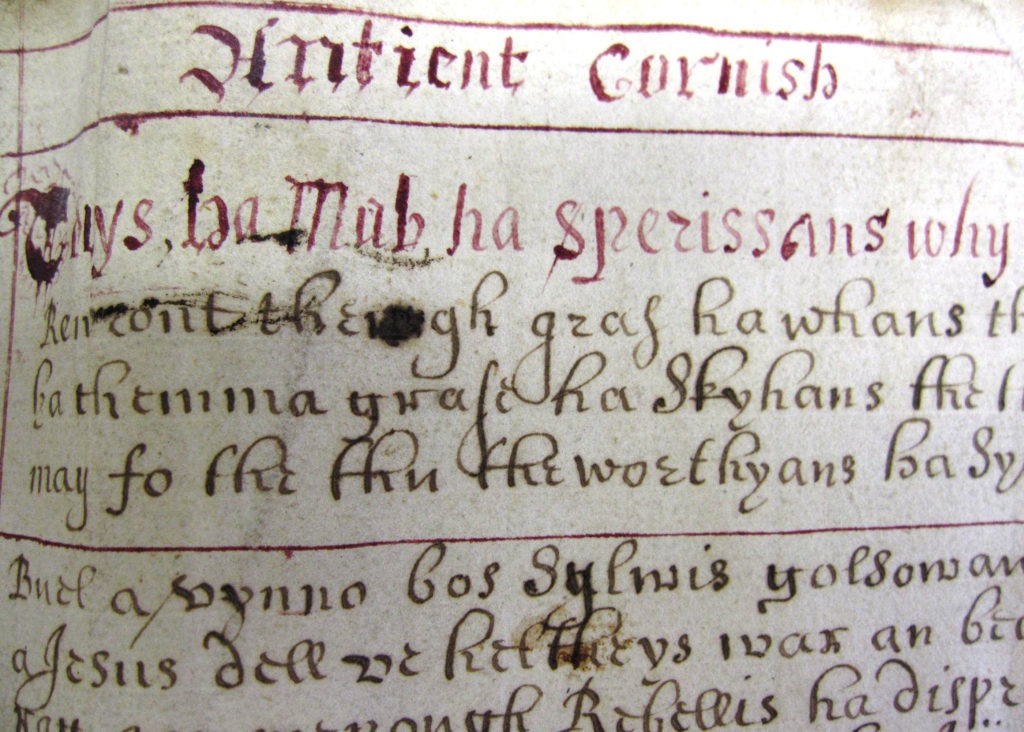 Antient Cornish
Tays, ha Mab, ha sperissans why
Ren ront theugh gras ha whans
ha themma grase ha skyhans the
may fo the thu the worthyans ha
Buel a vynno bos sylwis golsowan
a Jesus dell ve helheys war an
Rebellis ha